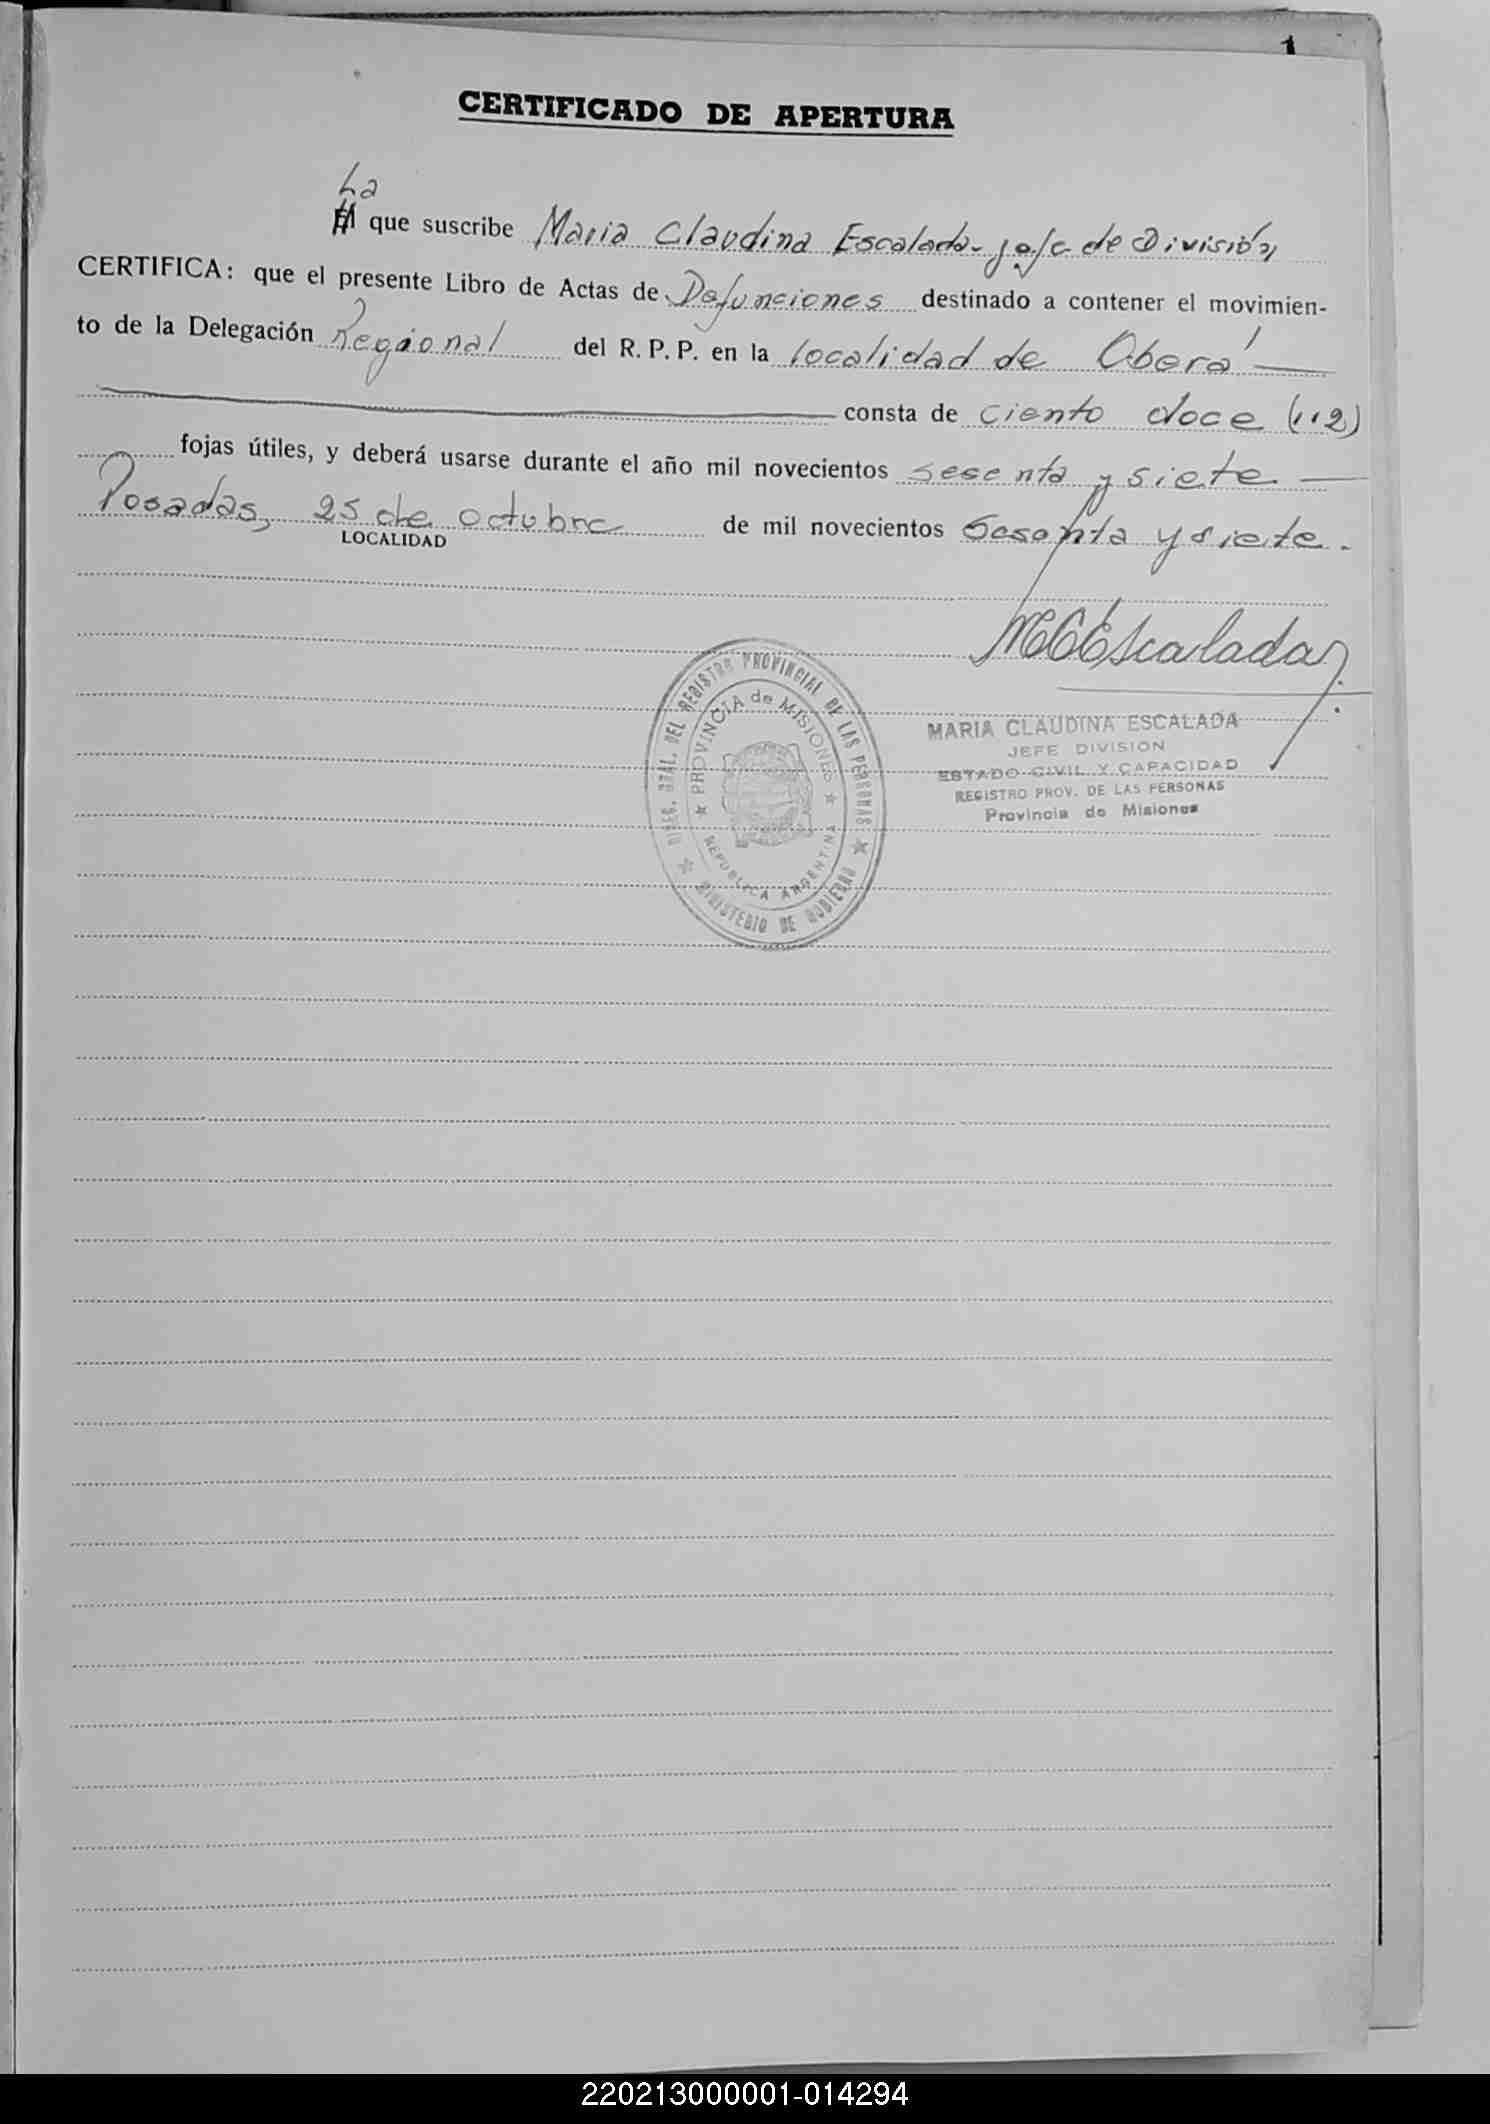 1
CERTIFICADO DE APERTURA
La
El que suscribe Maria Claudina Escalada - jefe de División,
CERTIFICA: que el presente Libro de Actas de Defunciones destinado a contener el movimien-
to de la Delegación Regional del R. P. P. en la localidad de Oberá
consta de ciento doce (112)
fojas útiles, y deberá usarse durante el año mil novecientos sesenta y siete
Posadas, 25 de octubre de mil novecientos sesenta y siete.
LOCALIDAD
MCEscalada
MARIA CLAUDINA ESCALADA
JEFE DIVISION
ESTADO CIVIL Y CAPACIDAD
REGISTRO PROV. DE LAS PERSONAS
Provincia de Misiones
DIREC. GRAL. DEL REGISTRO PROVINCIAL DE LAS PERSONAS
MINISTERIO DE GOBIERNO
PROVINCIA de MISIONES
REPUBLICA ARGENTINA
220213000001-014294